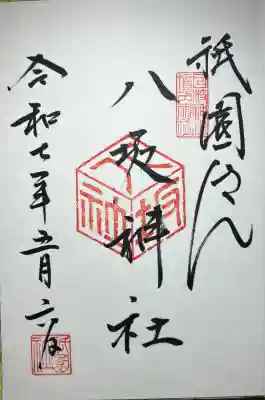 祇園さん
八坂神社
令和七年五月六日